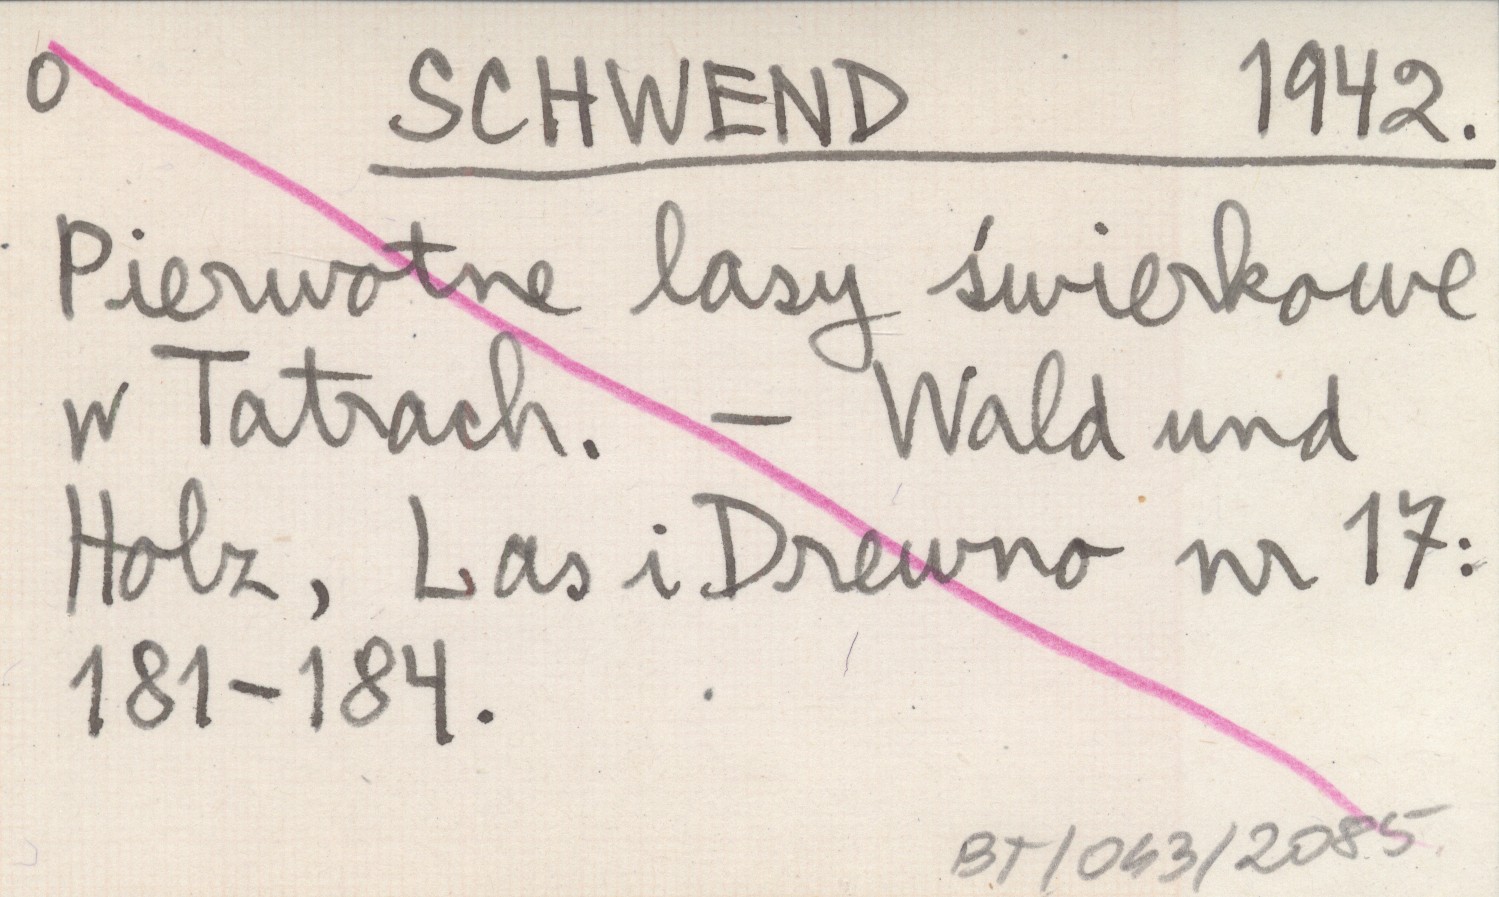 O SCHWEND 1942.
Pierwotne lasy świerkowe
w Tatrach. – Wald und
Holz, Las i Drewno nr 17:
181-184.
BT/043/2085